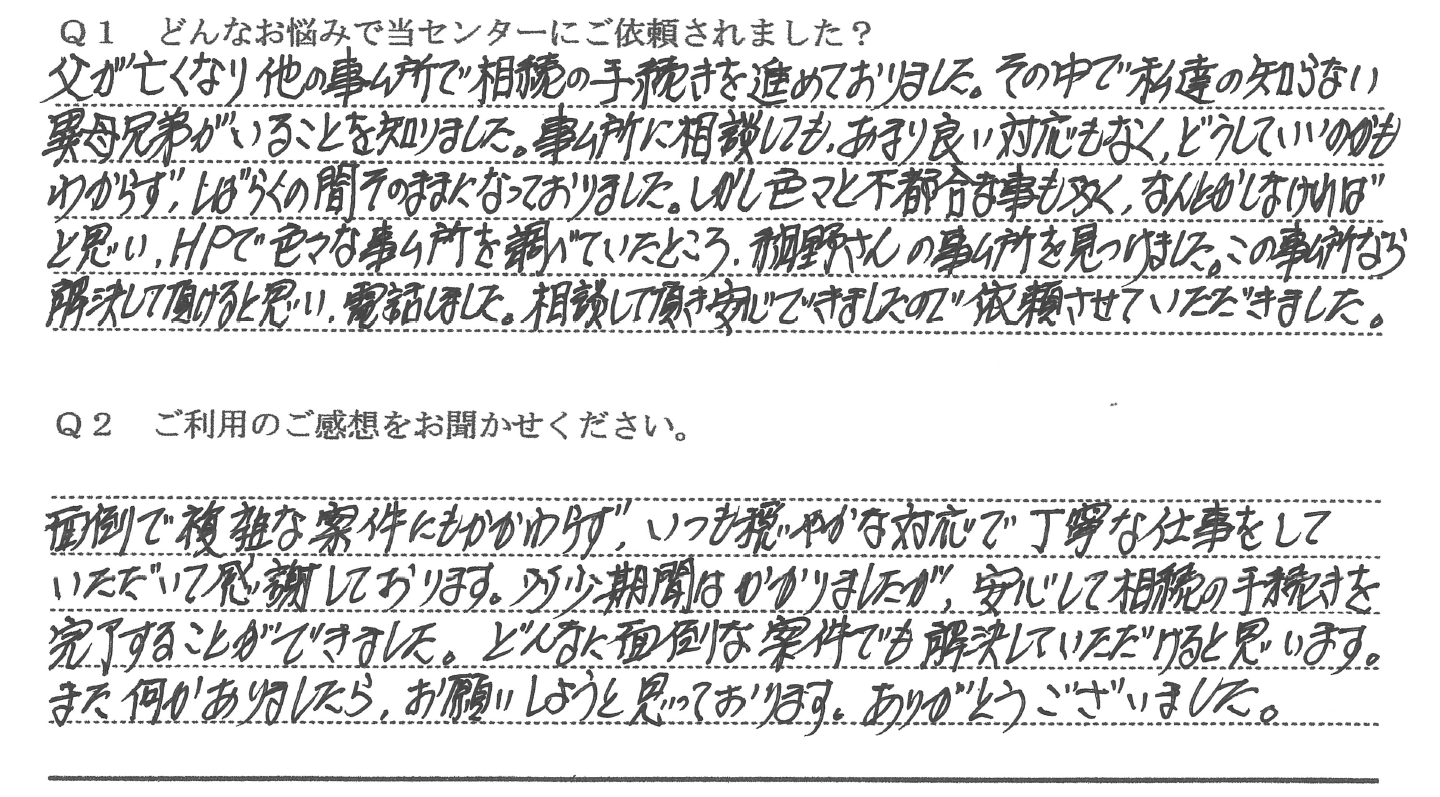 Q1 どんなお悩みで当センターにご依頼されました？
父が亡くなり他の事ム所で相続の手続きを進めておりました。その中で私達の知らない
異母兄弟がいることを知りました。事ム所に相談しても、あまり良い対応もなく、どうしていいのかも
わからず、しばらくの間そのままになっておりました。しかし色々と不都合な事も多く、なんとかしなければ
と思い、HPで色々な事ム所を調べていたところ、稲野さんの事ム所を見つけました。この事ム所なら
解決して頂けると思い、電話しました。相談して頂き安心できましたので依頼させていただきました。
Q2 ご利用のご感想をお聞かせください。
面倒で複雑な案件にもかかわらず、いつも穏やかな対応で丁寧な仕事をして
いただいて感謝しております。多少期間はかかりましたが、安心して相続の手続きを
完了することができました。どんなに面倒な案件でも解決していただけると思います。
また何かありましたら、お願いしようと思っております。ありがとうございました。